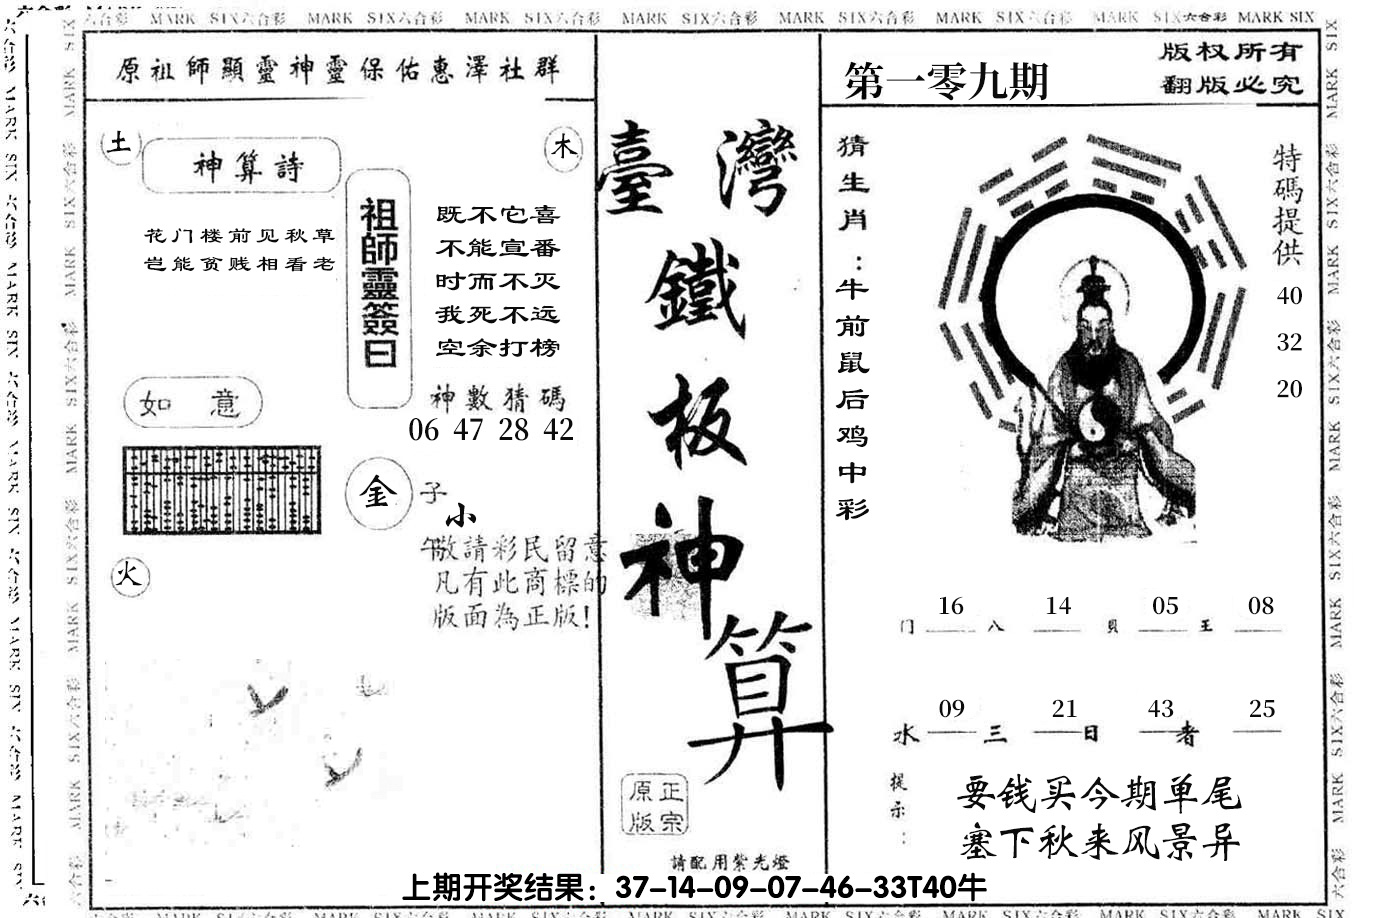 MARK SIX六合彩 MARK SIX六合彩 MARK SIX六合彩 MARK SIX六合彩 MARK SIX六合彩 MARK SIX六合彩 MARK SIX六合彩 MARK SIX
原祖師顯靈神靈保佑惠澤社群
土
神算詩
木
花门楼前见秋草
岂能贫贱相看老
祖師靈簽曰
既不它喜
不能宣番
时而不灭
我死不远
空余打榜
如意
神數猜碼
06 47 28 42
金
子
小
午
敬請彩民留意
凡有此商標的
版面為正版!
火
臺灣
鐵
板
神
算
原正
版宗
請配用紫光燈
第一零九期
版权所有
翻版必究
猜生肖:牛前鼠后鸡中彩
特碼提供
40
32
20
16 14 05 08
门 八 貝 王
09 21 43 25
水 三 日 者
提示:
要钱买今期单尾
塞下秋来风景异
上期开奖结果：37-14-09-07-46-33T40牛